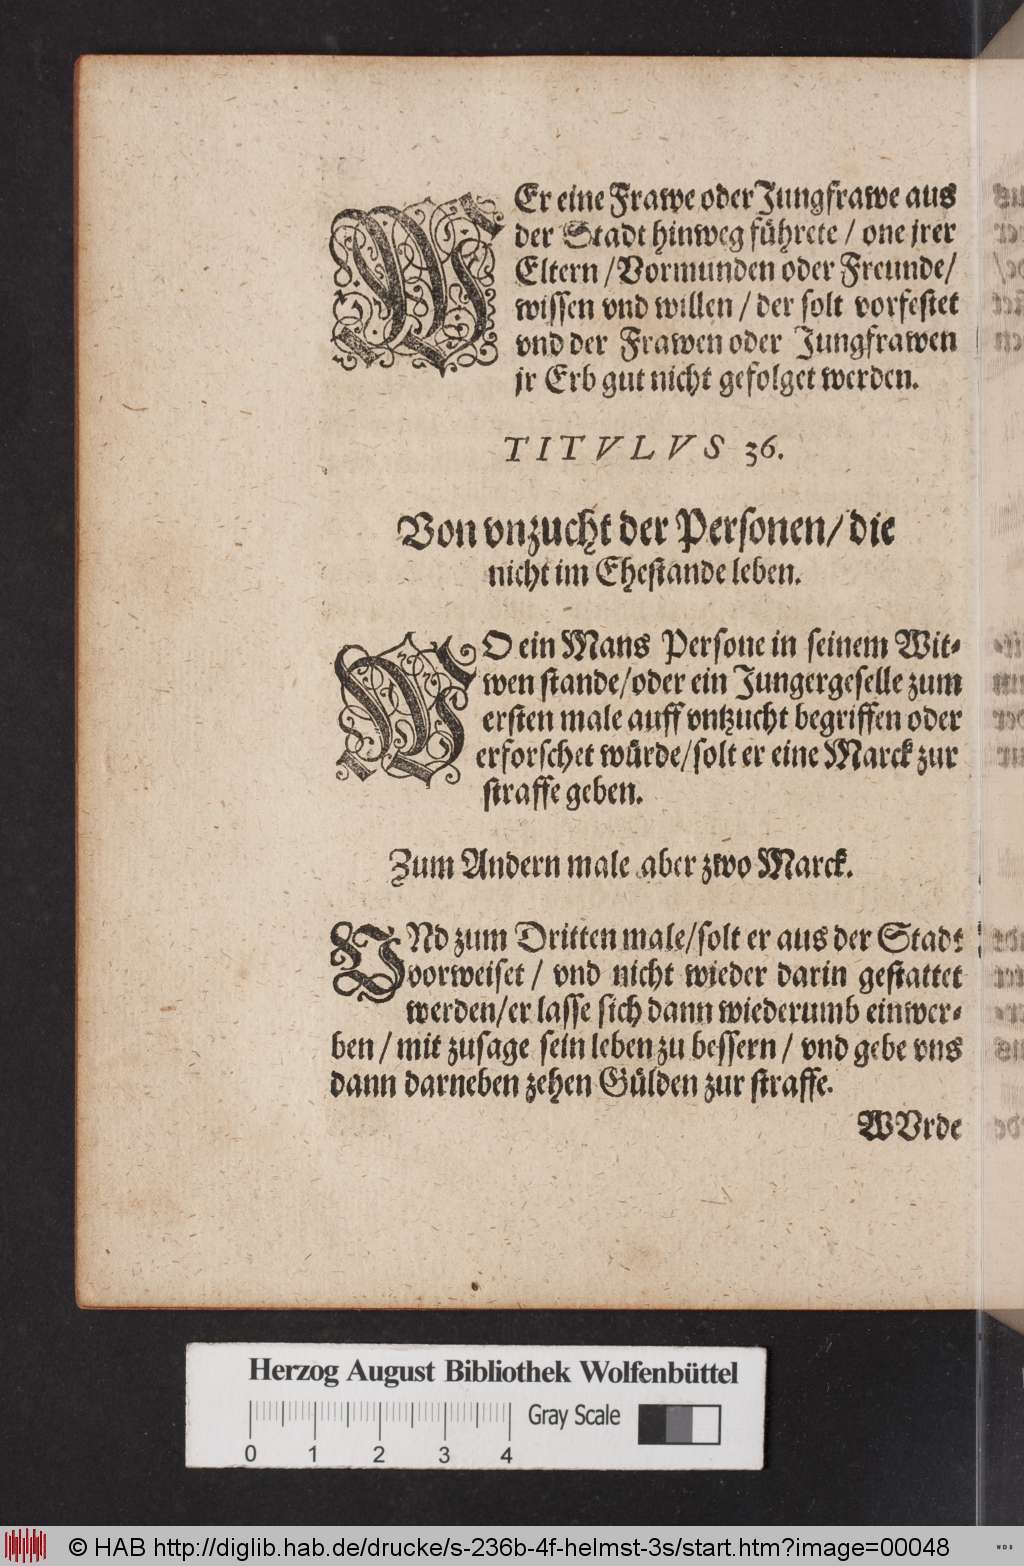 WEr eine Frawe oder Jungfrawe aus
der Stadt hinweg führete / one jrer
Eltern / Vormunden oder Freunde /
wissen vnd willen / der solt vorfestet
vnd der Frawen oder Jungfrawen
jr Erb gut nicht gefolget werden.
TITVLVS 36.
Von vnzucht der Personen / die
nicht im Ehestande leben.
WO ein Mans Persone in seinem Wit-
wen stande / oder ein Jungergeselle zum
ersten male auff vntzucht begriffen oder
erforschet würde / solt er eine Marck zur
straffe geben.
Zum Andern male aber zwo Marck.
VNd zum Dritten male / solt er aus der Stadt
vorweiset / vnd nicht wieder darin gestattet
werden / er lasse sich dann wiederumb einwer-
ben / mit zusage sein leben zu bessern / vnd gebe vns
dann darneben zehen Gülden zur straffe.
WVrde
Herzog August Bibliothek Wolfenbüttel
Gray Scale
0 1 2 3 4
© HAB http://diglib.hab.de/drucke/s-236b-4f-helmst-3s/start.htm?image=00048